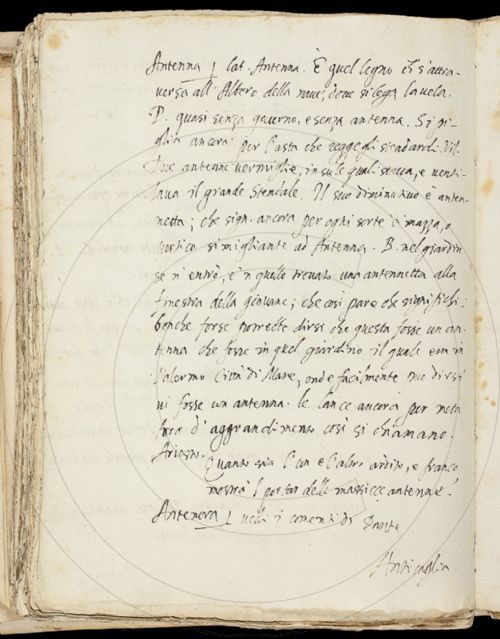 Antenna | lat. Antenna. È quel legno ch s'attra-
versa all'Albero della nave, dove si lega la vela.
D. quasi senza governo, e senza antenna. Si pi-
glia ancora per l'asta che regge gli stendardi. Vil.
Due antenne vermiglie, in su le quali stava, e venti-
lava il grande Stendale. Il suo diminutivo è anten-
netta; che sign. ancora per ogni sorte di mazza, o
simigliante ad Antenna. B. nel giardin
se n'entrò, e 'n quello trovata una antennetta alla
finestra della giovane; che così pare che significhi.
benche forse potrebbe dirsi che questa fosse un an-
tenna che fosse in quel giardino il quale era in
Palermo Città di Mare, onde facilmente può dirsi
vi fosse un antenna. le lance ancora per meta
fora d'aggrandimento così si chiamano.
Ariosto.
Quanto sia l'un e l'altro ardito, e franco
mostra 'l portar delle massicce antenne.
Antenora | vedi i comenti di Dante
Anticaglia.